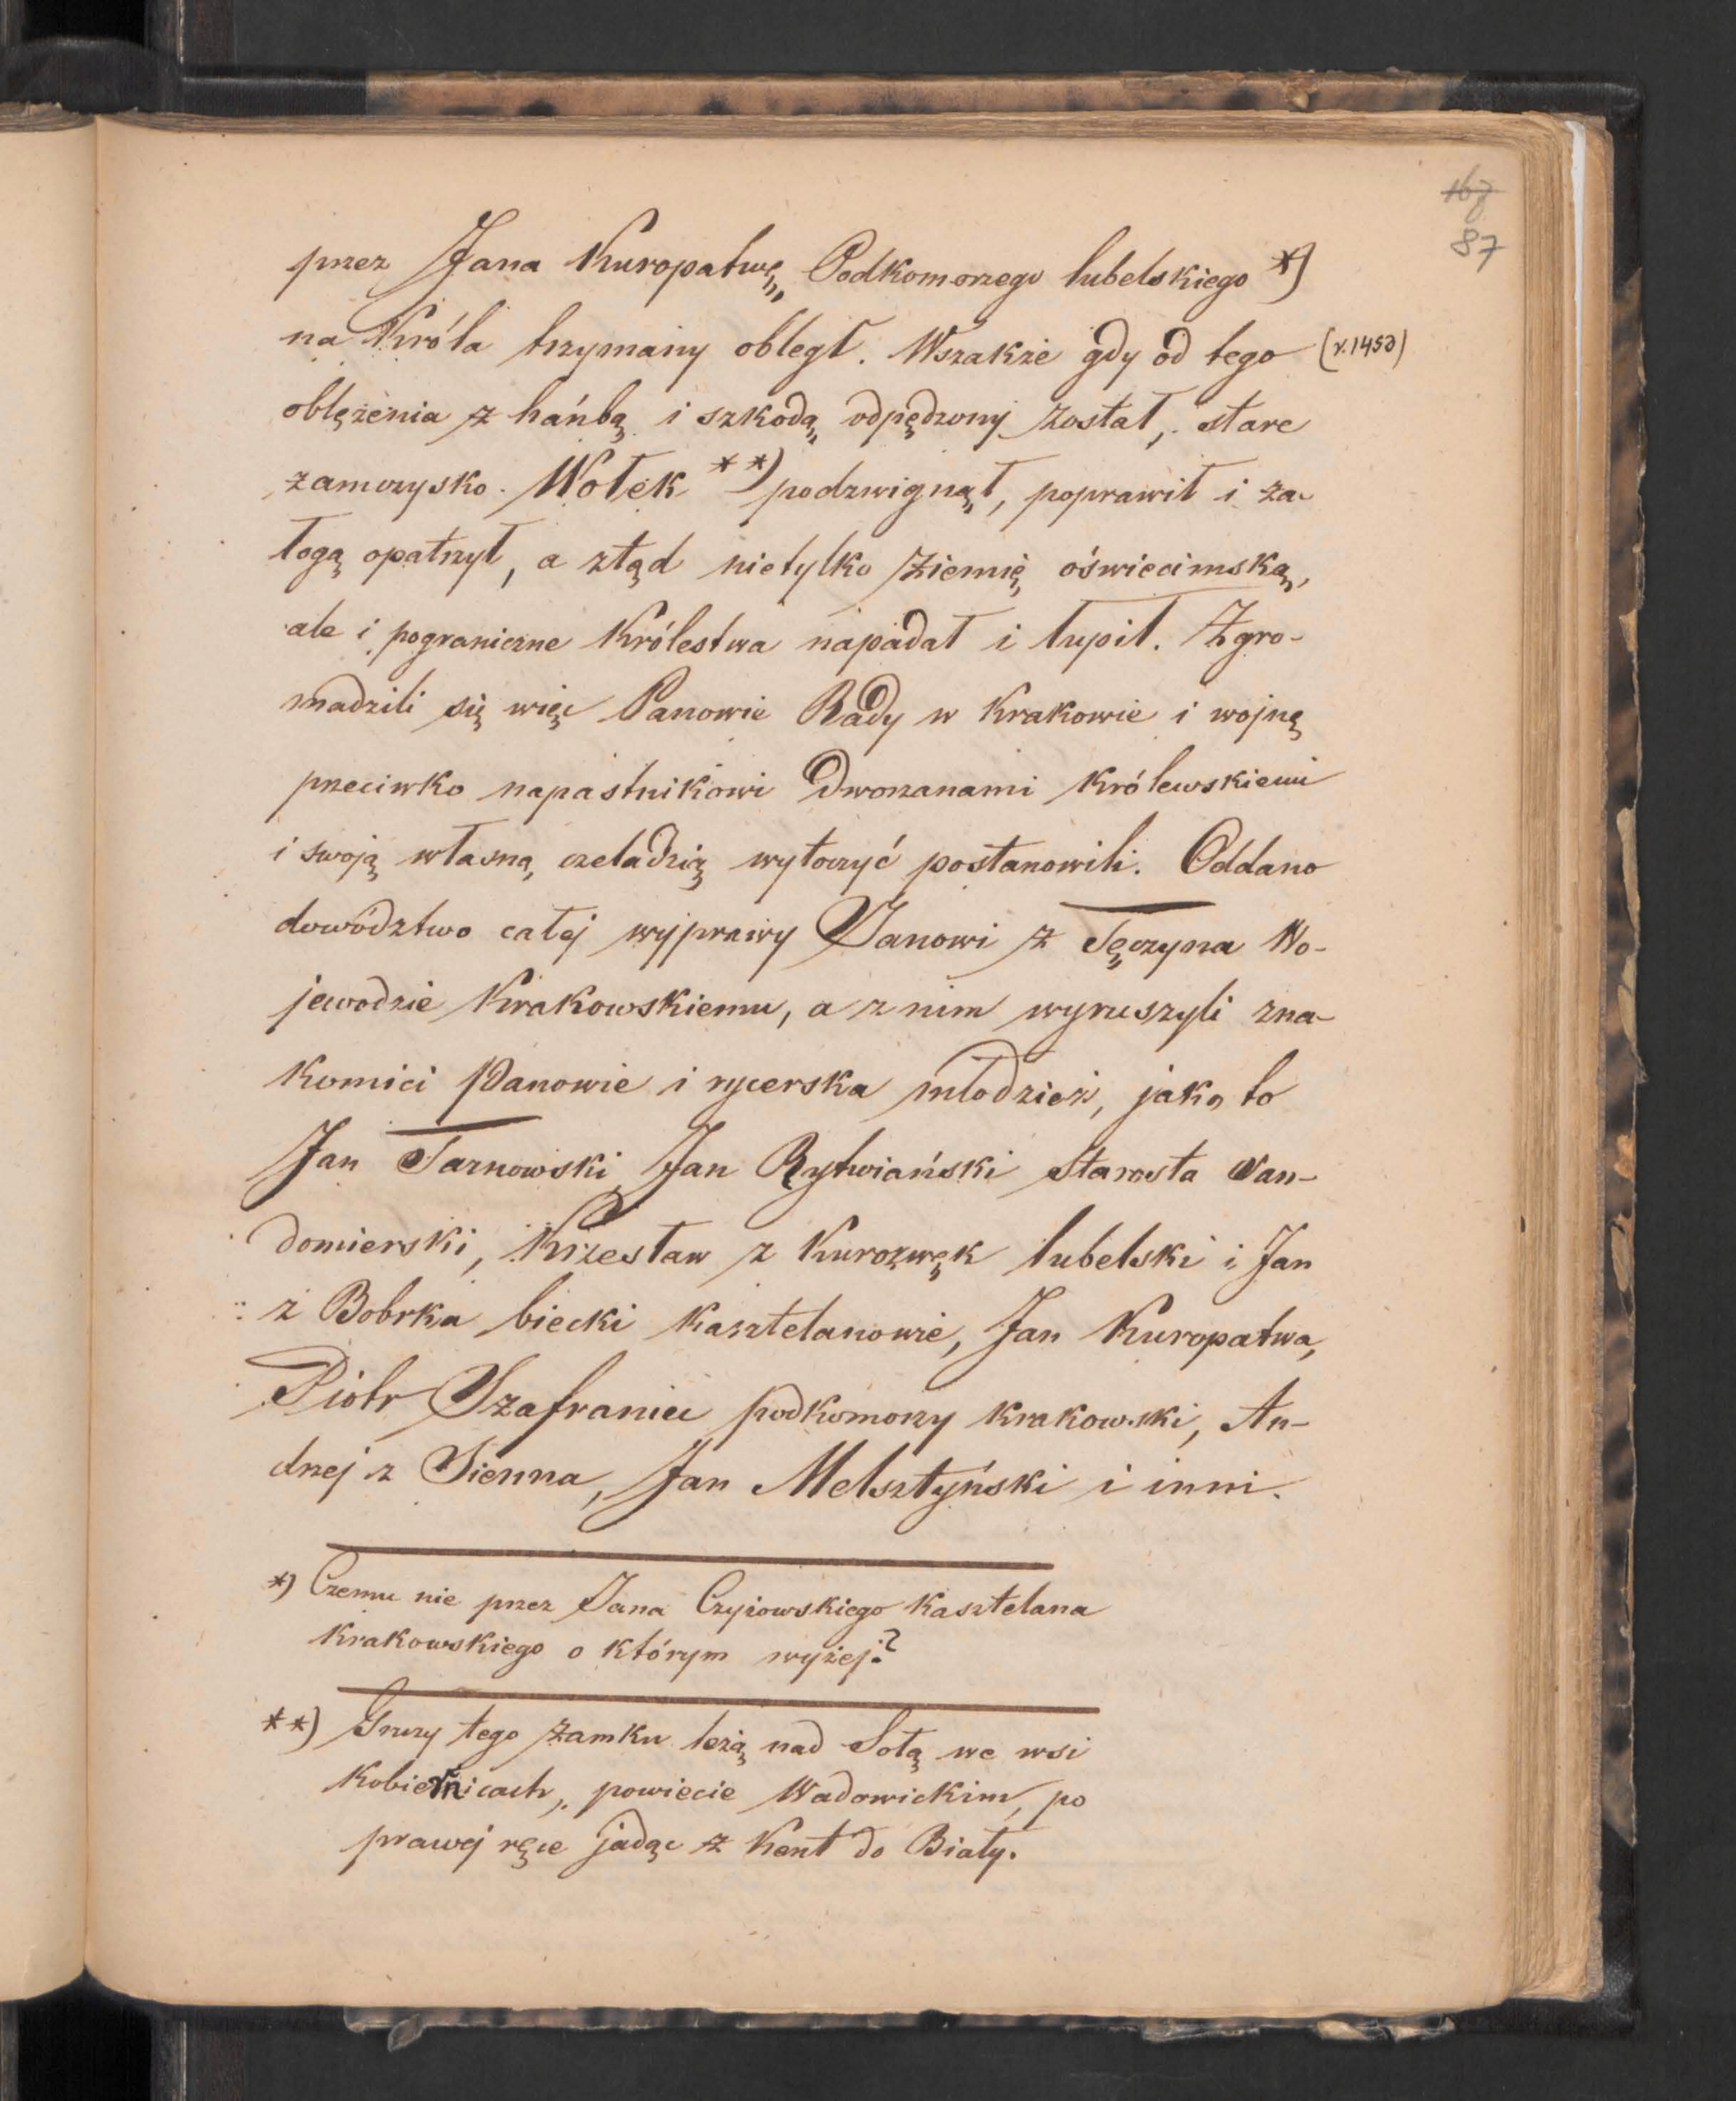 167
87
przez Jana Kuropatwę, Podkomorzego lubelskiego *)
na Króla trzymany obległ. Wszakże gdy od tego (r. 1453)
oblężenia z hańbą i szkodą odpędzony został, stare
zamczysko Wołek **) podzwignął, poprawił i za-
łogą opatrzył, a ztąd nietylko ziemię oświecimską,
ale i pograniczne Królestwa napadał i łupił. Zgro-
madzili się więc Panowie Rady w Krakowie i wojnę
przeciwko napastnikowi Dworzanami Królewskiemi
i swoją własną czeladzią wytoczyć postanowili. Oddano
dowództwo całej wyprawy Janowi z Tęczyna Wo-
jewodzie Krakowskiemu, a z nim wyruszyli zna-
komici Panowie i rycerska młodzież, jako to
Jan Tarnowski, Jan Rytwiański Starosta San-
domierski, Krzesław z Kurozwęk lubelski i Jan
z Bobrka biecki Kasztelanowie, Jan Kuropatwa,
Piotr Szafraniec podkomorzy krakowski, An-
drzej z Sienna, Jan Melsztyński i inni.
*) Czemu nie przez Jana Czyżowskiego Kasztelana
Krakowskiego o którym wyżej?
**) Gruzy tego zamku leżą nad Sołą we wsi
Kobiernicach, powiecie Wadowickim, po
prawej ręce jadąc z Kent do Biały.